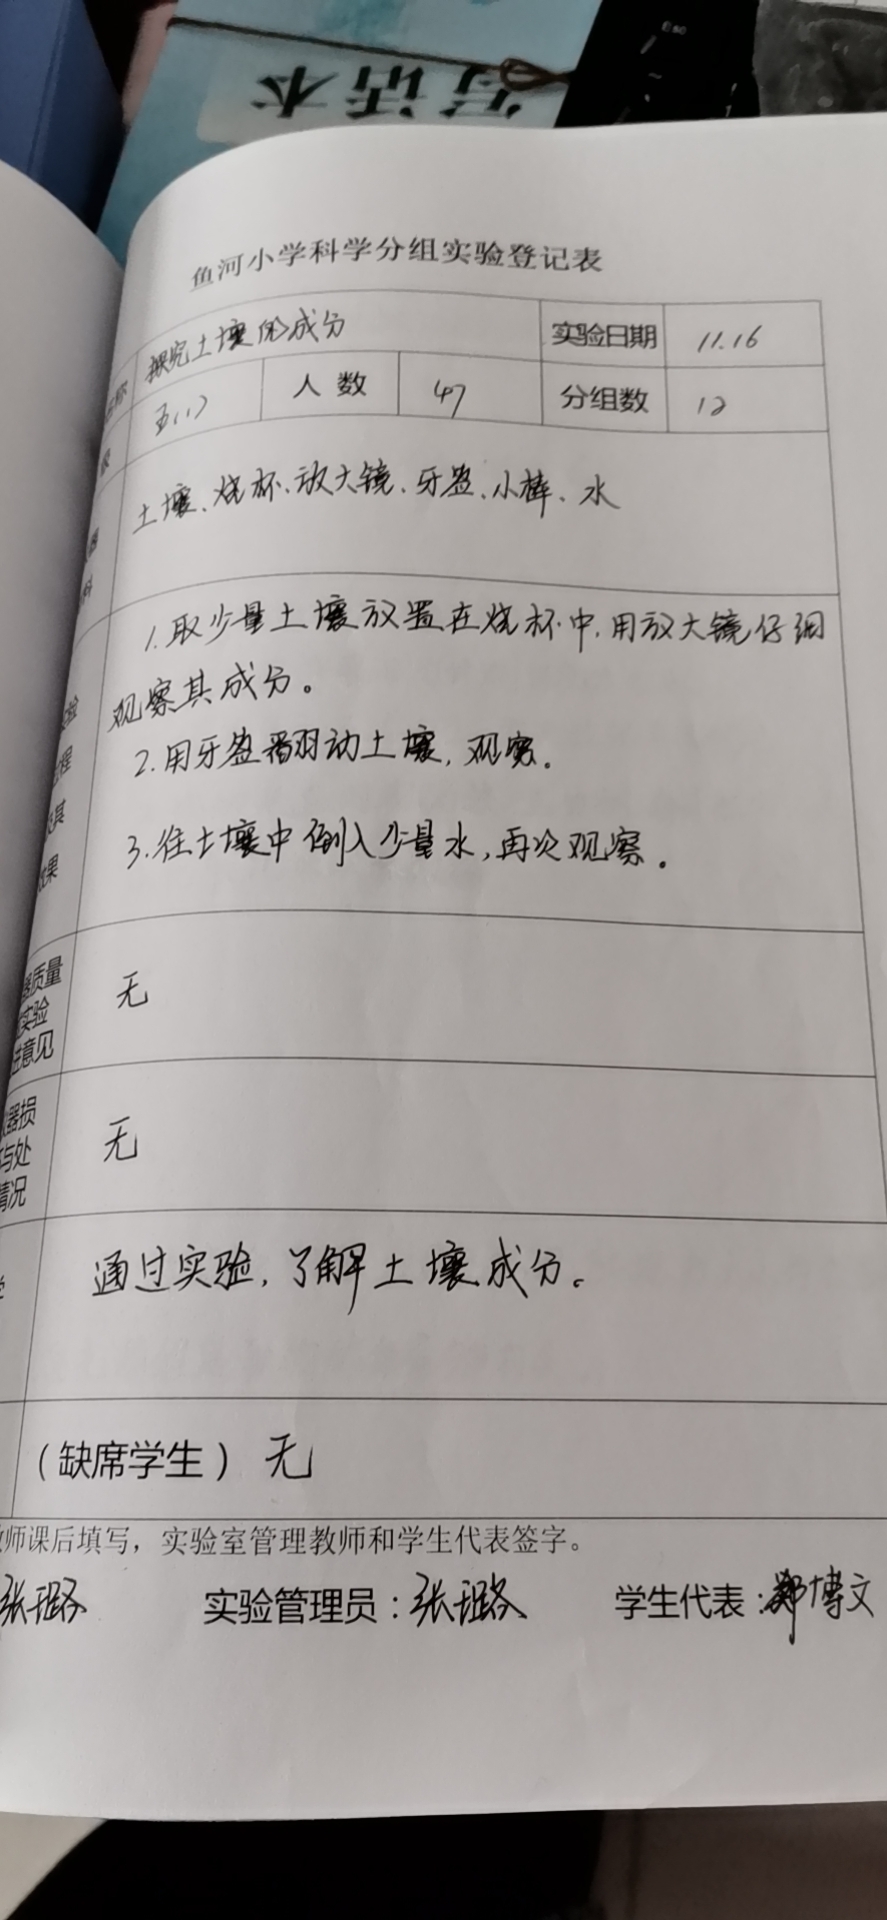 写话本
鱼河小学科学分组实验登记表
称 探究土壤的成分 实验日期 11.16
级 五(1) 人数 47 分组数 12
土壤、烧杯、放大镜、牙签、小棒、水
器
料
1.取少量土壤放置在烧杯中,用放大镜仔细
观察其成分。
验
2.用牙签翻动土壤,观察。
程
其
3.往土壤中倒入少量水,再次观察。
果
器质量
实验
进意见
无
器损
与处
情况
无
通过实验,了解土壤成分。
(缺席学生) 无
师课后填写,实验室管理教师和学生代表签字。
张璐 实验管理员:张璐 学生代表:郑博文